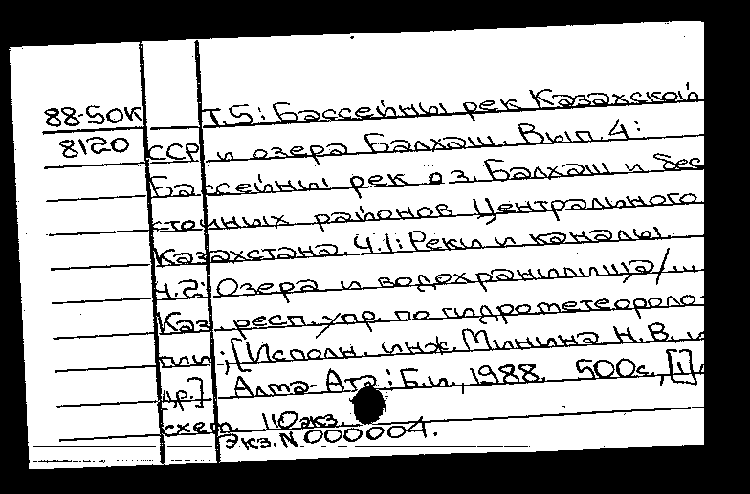 88-50К Т.5: Бассейны рек Казахской
8120 ССР и озера Балхаш. Вып. 4:
Бассейны рек оз. Балхаш и бес
сточных районов Центрального
Казахстана. Ч.1: Реки и каналы.
Ч.2: Озера и водохранилища/...
Каз. респ. упр. по гидрометеороло-
гии; [Исполн. инж. Минина Н. В. и
др.] Алма-Ата: Б.и., 1988. 500с., [1]
схем. 110экз.
Экз. N 000004.